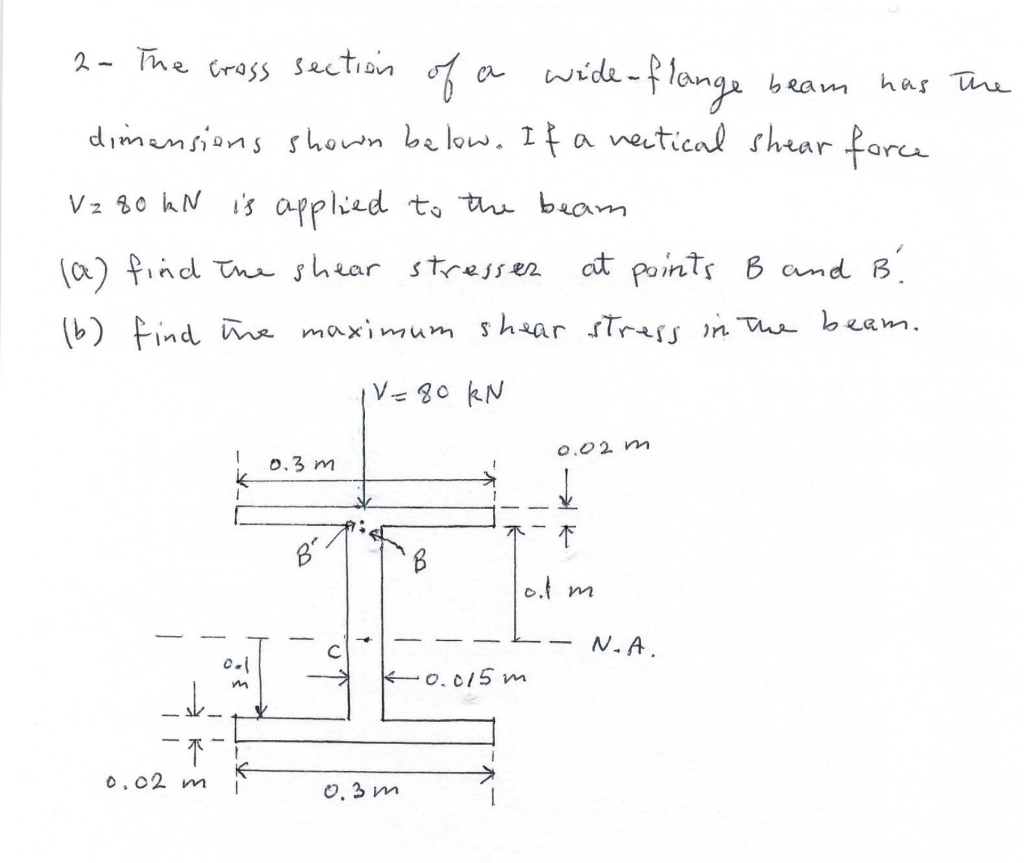 2- The cross section of a wide-flange beam has the
dimensions shown below. If a vertical shear force
V= 80 kN is applied to the beam
(a) find the shear stresses at points B and B'.
(b) find the maximum shear stress in the beam.
V= 80 kN
0.02 m
0.3 m
B'
B
0.1 m
N.A.
C
0.1
m
0.015 m
0.02 m
0.3 m